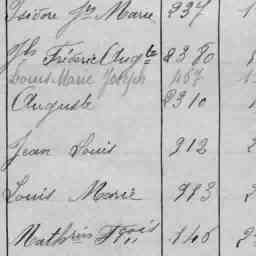 Isidore Jh Marie 237 1
Jh Frédéric Augte 2380
Louis Marie Joseph 467 1
Auguste 2310
Jean Louis 212 2
Louis Marie 983
Mathrin Fçois 146 2